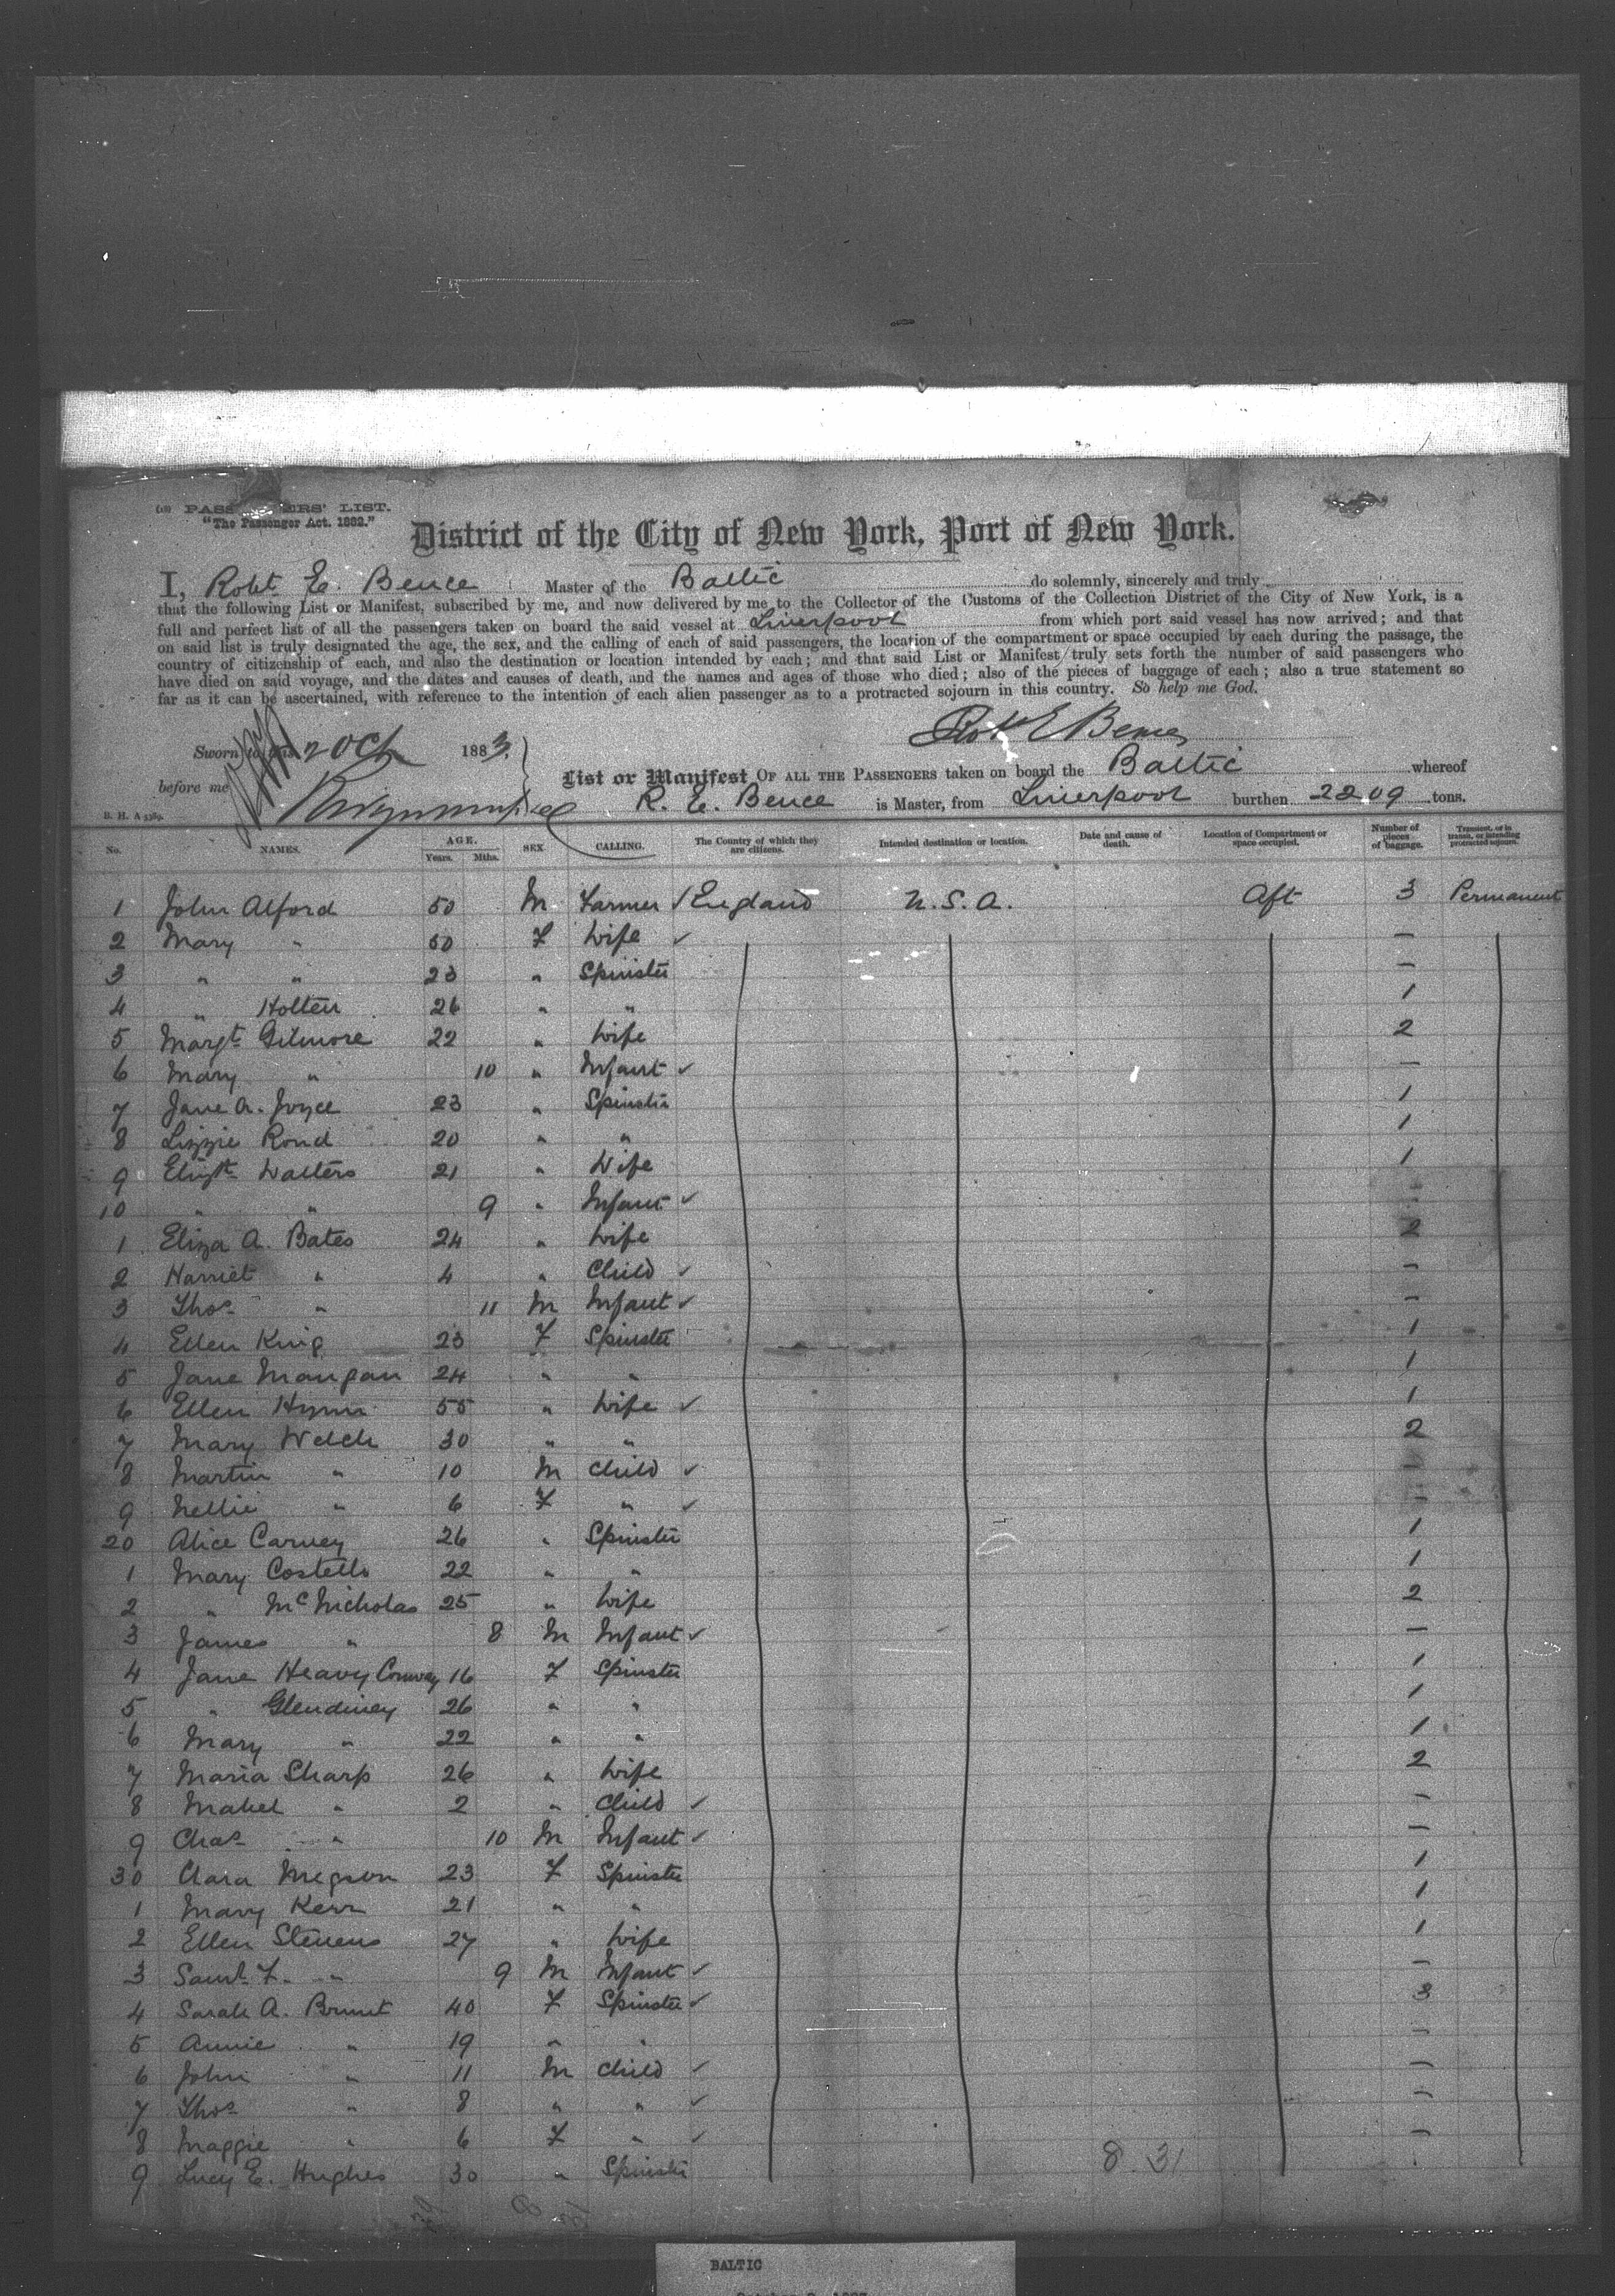 PASSENGERS' LIST.
"The Passenger Act. 1882."
District of the City of New York, Port of New York.
I, Robt. E. Bence Master of the Baltic do solemnly, sincerely and truly
that the following List or Manifest, subscribed by me, and now delivered by me to the Collector of the Customs of the Collection District of the City of New York, is a
full and perfect list of all the passengers taken on board the said vessel at Liverpool from which port said vessel has now arrived; and that
on said list is truly designated the age, the sex, and the calling of each of said passengers, the location of the compartment or space occupied by each during the passage, the
country of citizenship of each, and also the destination or location intended by each; and that said List or Manifest truly sets forth the number of said passengers who
have died on said voyage, and the dates and causes of death, and the names and ages of those who died; also of the pieces of baggage of each; also a true statement so
far as it can be ascertained, with reference to the intention of each alien passenger as to a protracted sojourn in this country. So help me God.
Robt E Bence
Sworn to this 2 Oct 1883
before me
List or Manifest OF ALL THE PASSENGERS taken on board the Baltic whereof
R. E. Bence is Master, from Liverpool burthen 2209 tons.
No. NAMES. AGE. Years. Mths. SEX. CALLING. The Country of which they are citizens. Intended destination or location. Date and cause of death. Location of Compartment or space occupied. Number of pieces of baggage. Transient, or in transit, or intending protracted sojourn.
1 John Alford 50 M Farmer / England U.S.A. Aft 3 Permanent
2 Mary " 50 F Wife ✓ —
3 " " 23 " Spinster —
4 " Holten 26 " " 1
5 Margt. Gilmore 22 " Wife 2
6 Mary " 10 " Infant ✓ —
7 Jane A. Joyce 23 " Spinster 1
8 Lizzie Rond 20 " " 1
9 Elizth. Walters 21 " Wife 1
10 " " 9 " Infant ✓ -
1 Eliza A. Bates 24 " Wife 2
2 Harriet " 4 " Child ✓ —
3 Thos. " 11 M Infant ✓ —
4 Ellen King 23 F Spinster 1
5 Jane Mangan 24 " " 1
6 Ellen Hynn 55 " Wife ✓ 1
7 Mary Welch 30 " " 2
8 Martin " 10 M Child ✓ —
9 Nellie " 6 F " ✓ —
20 Alice Carney 26 " Spinster 1
1 Mary Costello 22 " " 1
2 " McNicholas 25 " Wife 2
3 James " 8 M Infant ✓ —
4 Jane Heavy Conway 16 F Spinster 1
5 " Glendiney 26 " " 1
6 Mary " 22 " " 1
7 Maria Sharp 26 " Wife 2
8 Mabel " 2 " Child ✓ —
9 Chas. " 10 M Infant ✓ —
30 Clara Megson 23 F Spinster 1
1 Mary Kerr 21 " " 1
2 Ellen Stevens 27 " Wife 1
3 Saml. F. " 9 M Infant ✓ —
4 Sarah A. 40 F Spinster ✓ 3
5 Annie " 19 " " —
6 John " 11 M Child ✓ —
7 Thos. " 8 " " ✓ —
8 Maggie " 6 F " ✓ —
9 Lucy E. Hughes 30 " Spinster
8 31
BALTIC